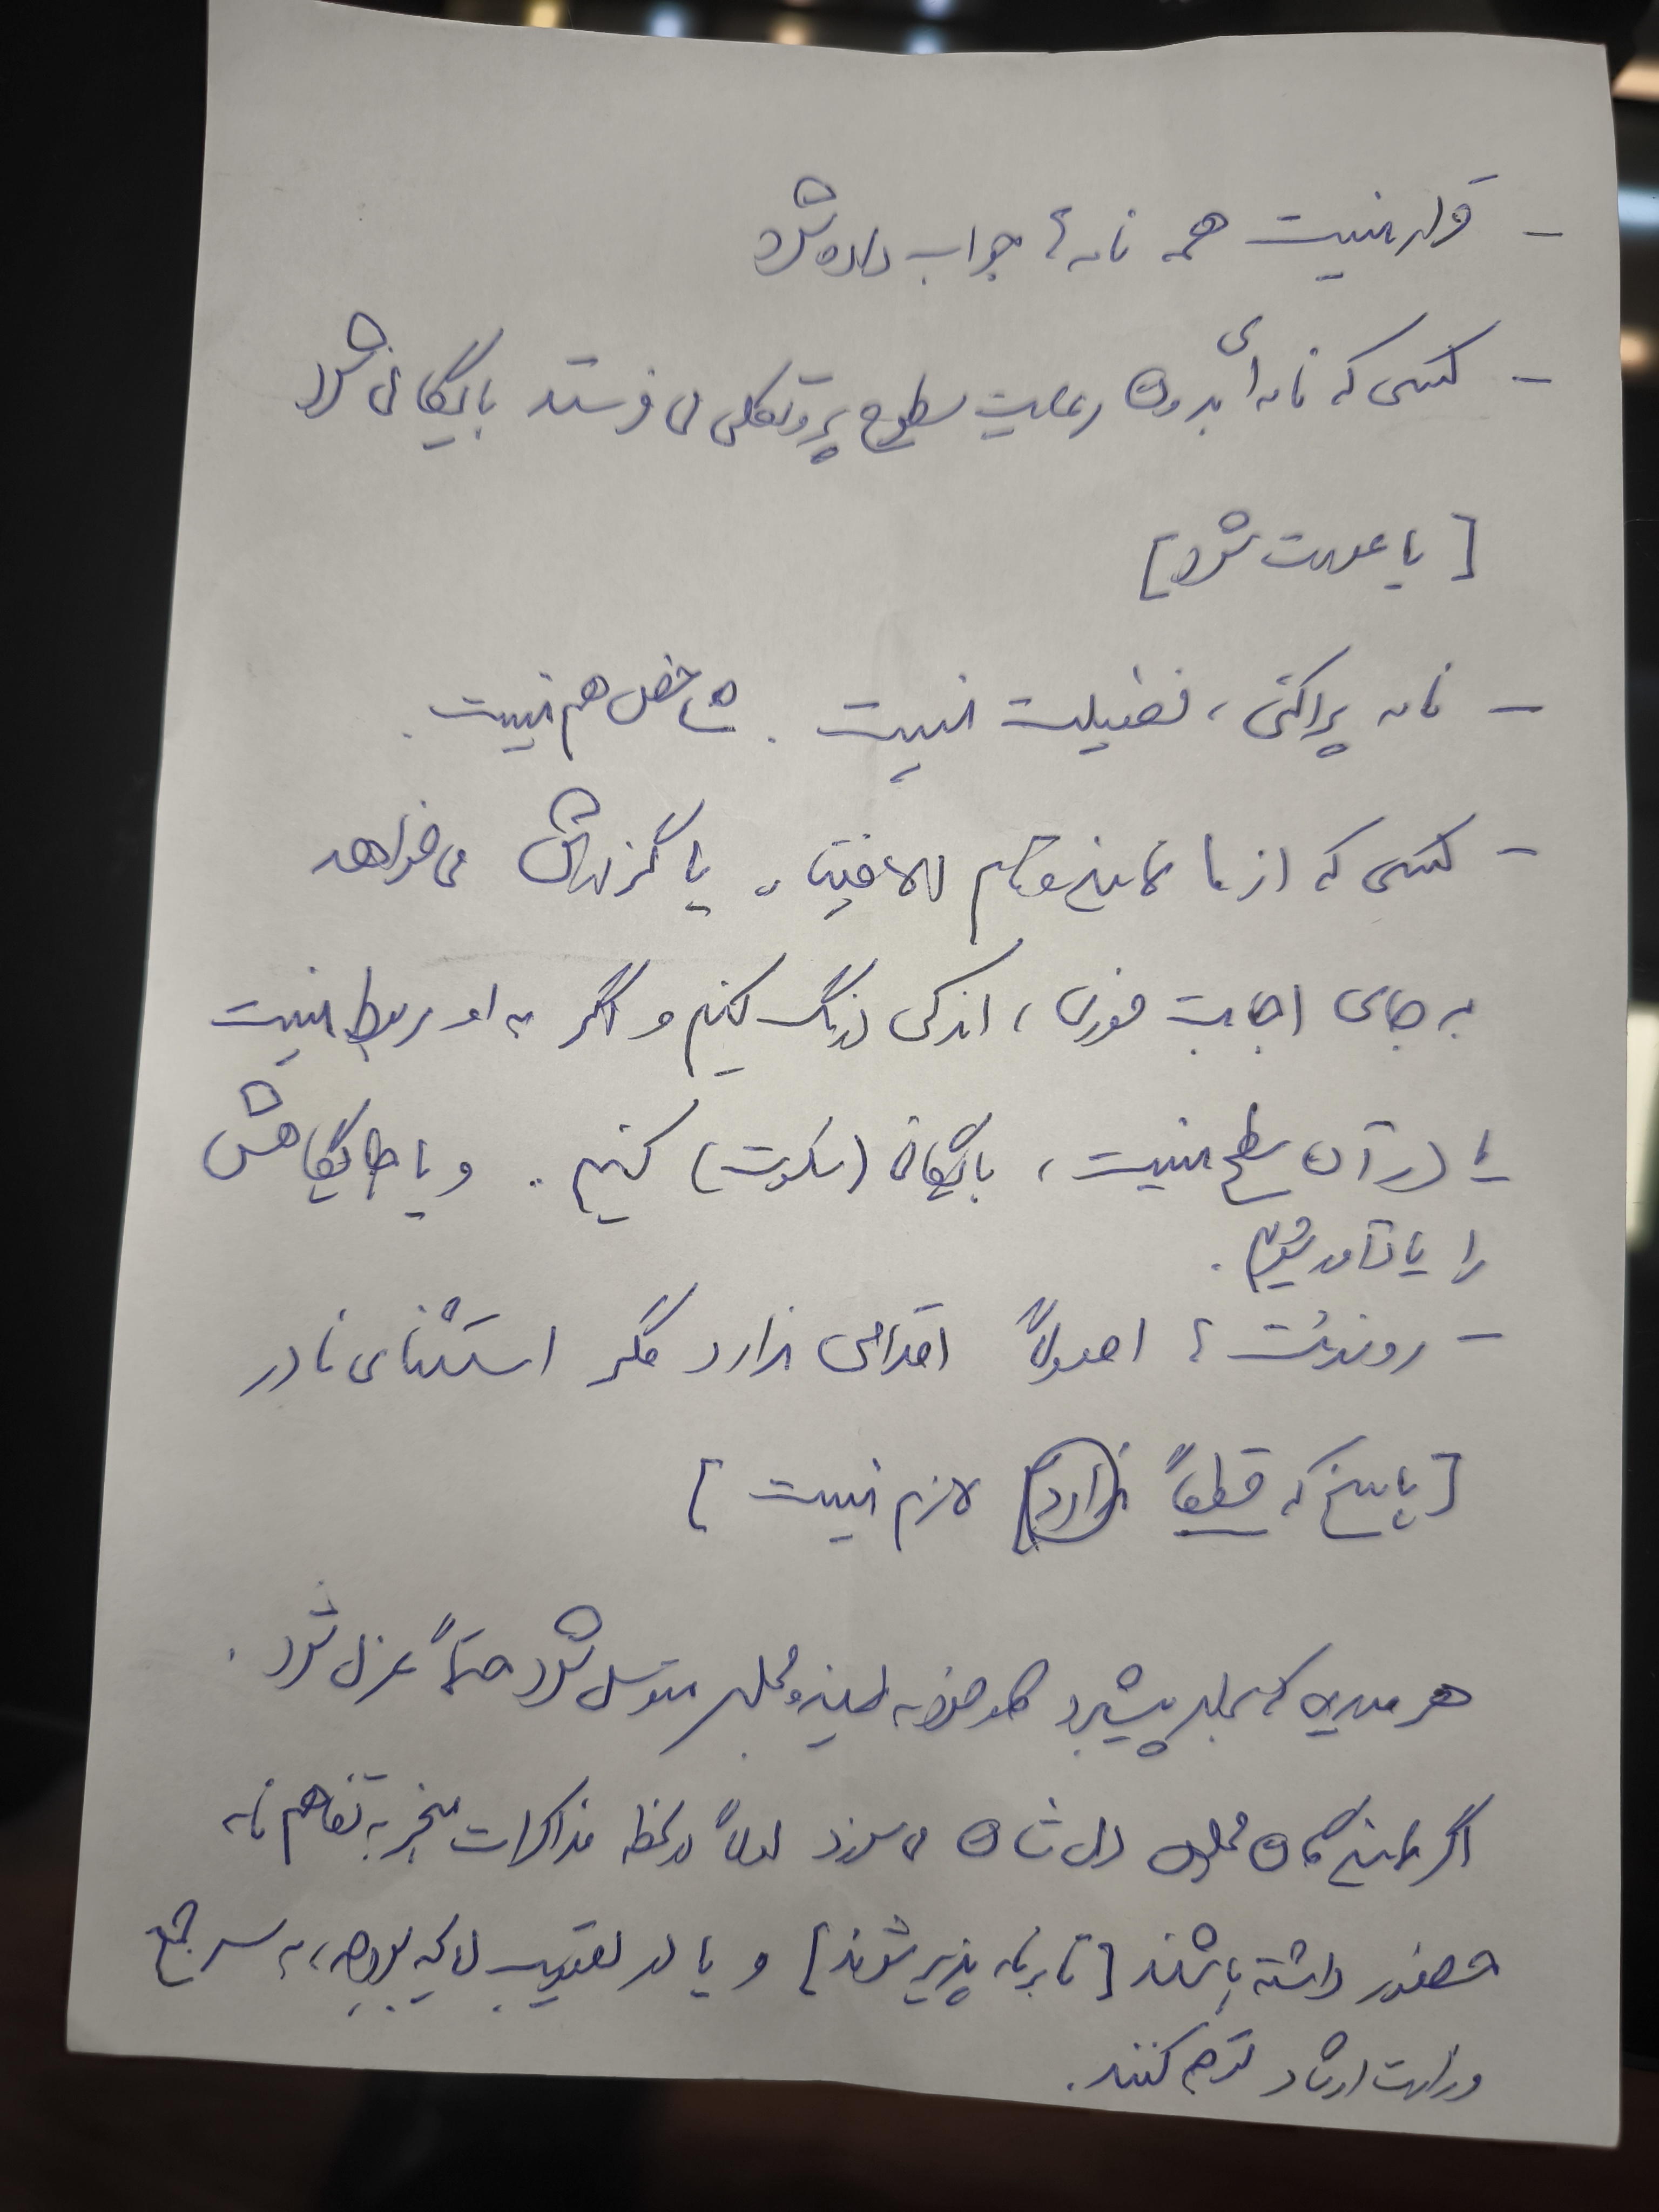 - قرار نیست همه نامه‌ها جواب داده شود
- کسی که نامه‌ای بدون رعایت سطوح پروتکلی می فرستد بایگانی شود
[یا عودت شود]
- نامه پراکنی، فضیلت نیست. شاخص هم نیست.
- کسی که از ما نماینده قائم الاختیار یا گزارش می خواهد
به جای اجابت فوری، اندکی درنگ کنیم و اگر به او مربوط نیست
یا در آن سطح نیست، بایگانی (سکوت) کنیم. و یا جایگاهش
را یادآور شویم.
- رونوشت‌ها اصولاً اقدامی ندارد مگر استثنای نادر
[پاسخ که قطعاً ندارد لازم نیست]
هر مدیری که برای پیشبرد کار خود به نماینده مجلس متوسل شود حتماً عزل شود.
اگر نمایندگان مجلس دلشان می سوزد اولاً در لحظه مذاکرات منجر به تفاهم نامه
حضور داشته باشند [تا برنامه پذیر شوند] و یا در تصویب لایحه بودجه، به سرجمع
وزارت ارشاد توجه کنند.